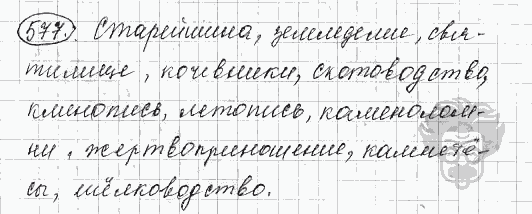 577. Старейшина, земледелие, свя-
тилище, кочевники, скотоводство,
клинопись, летопись, каменолом-
ни, жертвоприношение, камнетё-
сы, шёлководство.